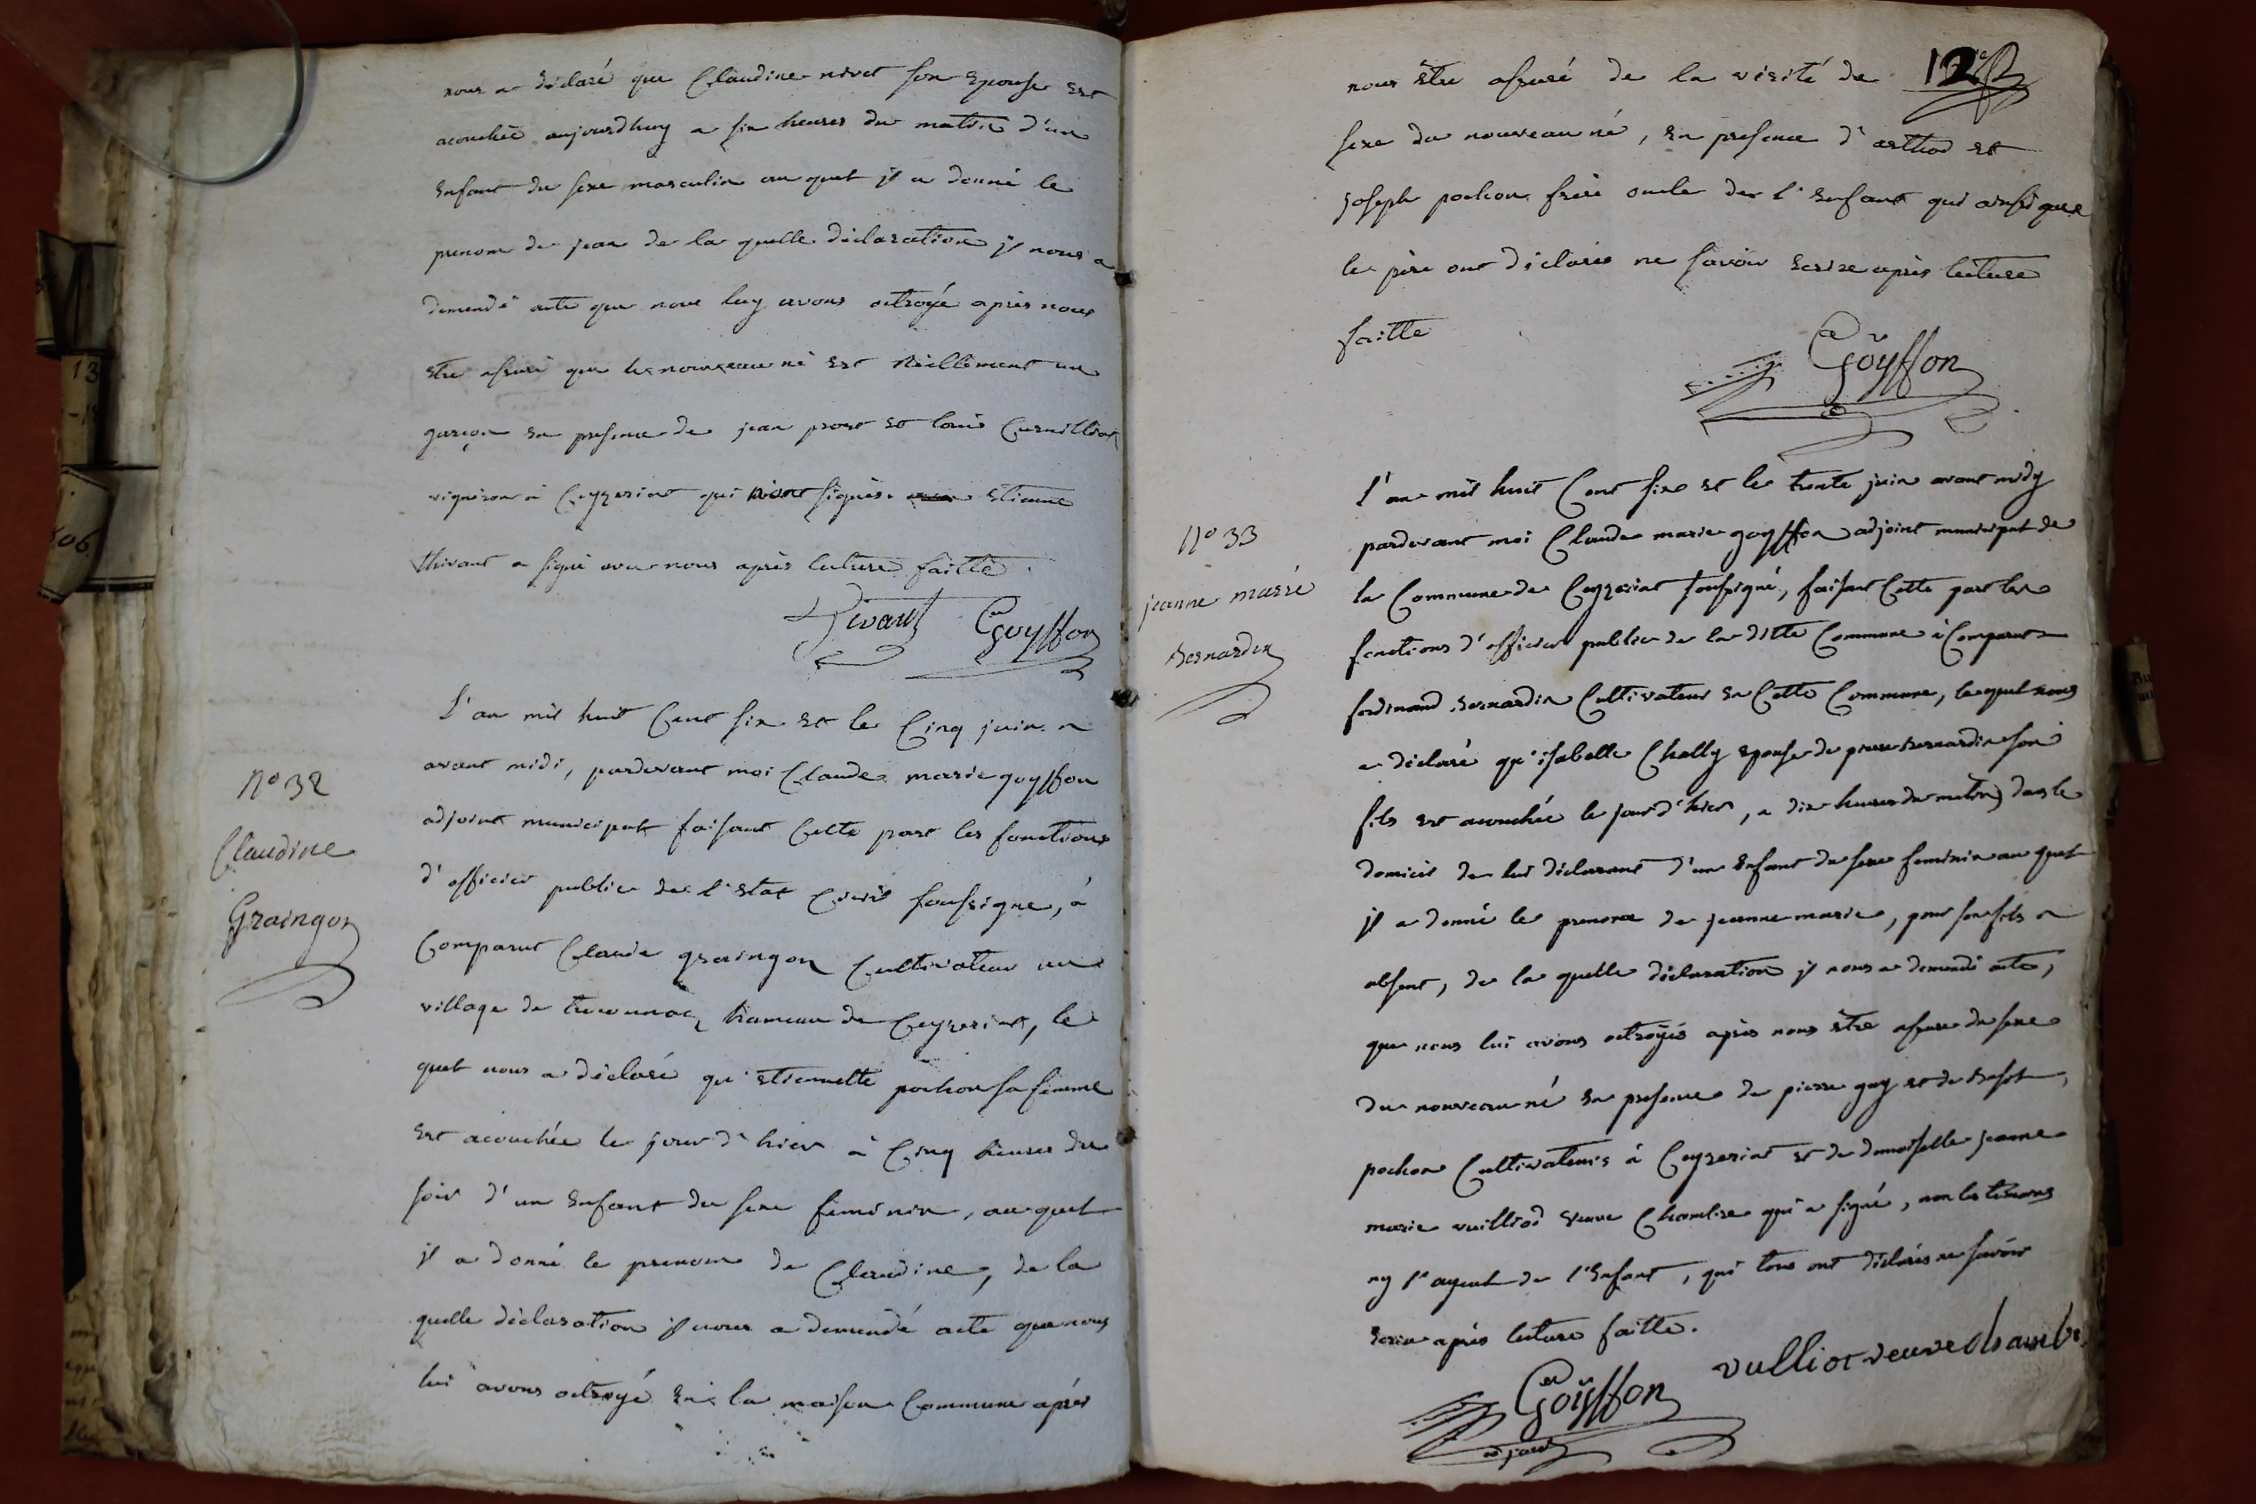 nous a déclaré que Claudine nivet son Epouse Est
acouchée aujourdhuy a six heures du matin d'un
Enfant du sexe masculin au quel il a donné le
prenom de jean de la quelle déclaration il nous a
demandé acte que nous luy avons octroyé après nous
etre assuré que le nouveau né Est réellement un
garçon En presence de jean prost et louis Cuvillier
vigneron à Ceyzeriat qui n'ont signés Etienne
thivant a signé avec nous après lecture faitte.
Tivant Goyffon
N° 32
Claudine
Graingon
L'an mil huit Cent six Et le Cinq juin a
avant midi, pardevant moi Claude marie goyffon
adjoint municipal faisant Cette part les fonctions
d'officier public de l'Etat Civil soussigne, à
Comparut Claude graingon Cultivateur au
village de hameau de Ceyzeriat, le
quel nous a déclaré qu'Etiennette pochon sa femme
Est acouchée le jour d'hier à Cinq heures du
soir d'un Enfant du sexe feminin, au quel
il a donné le prenom de Claudine, de la
quelle déclaration il nous a demandé acte que nous
lui avons octroyé En la maison Commune après
12
nous être assuré de la visité de
sexe du nouveau né, En presence d' et
joseph pochon frère oncle de l'Enfant qui ainsi que
le père ont déclarés ne savoir Ecrire après lecture
faitte
Goyffon
N° 33
jeanne marie
Bernardin
L'an mil huit Cent six et le trente juin avant midy
pardevant moi Claude marie goyffon adjoint municipal de
la Commune de Ceyzeriat soussigné, faisant Cette part les
fonctions d'officier public de la ditte Commune à Comparut
ferdinand Bernardin Cultivateur En Cette Commune, lequel nous
a déclaré qu'isabelle Chally Epouse de pierre Bernardin son
fils est acouchée le jour d'hier, a dix heures du matin dans le
domicil de lui déclarant d'un Enfant du sexe feminin au quel
il a donné le prenom de jeanne marie, pour son fils
absent, de la quelle déclaration il nous a demandé acte,
que nous lui avons octroyés après nous être assure du sexe
du nouveau né En presence de pierre guy et de
pochon Cultivateurs à Ceyzeriat et de demoiselle jeanne
marie vuilliod veuve Chambre qui a signé, non les témoins
ny l'ayeul de l'Enfant, qui tous ont déclarés ne savoir
Ecrire après lecture faitte.
Goyffon vulliot veuve chambr
adjoint